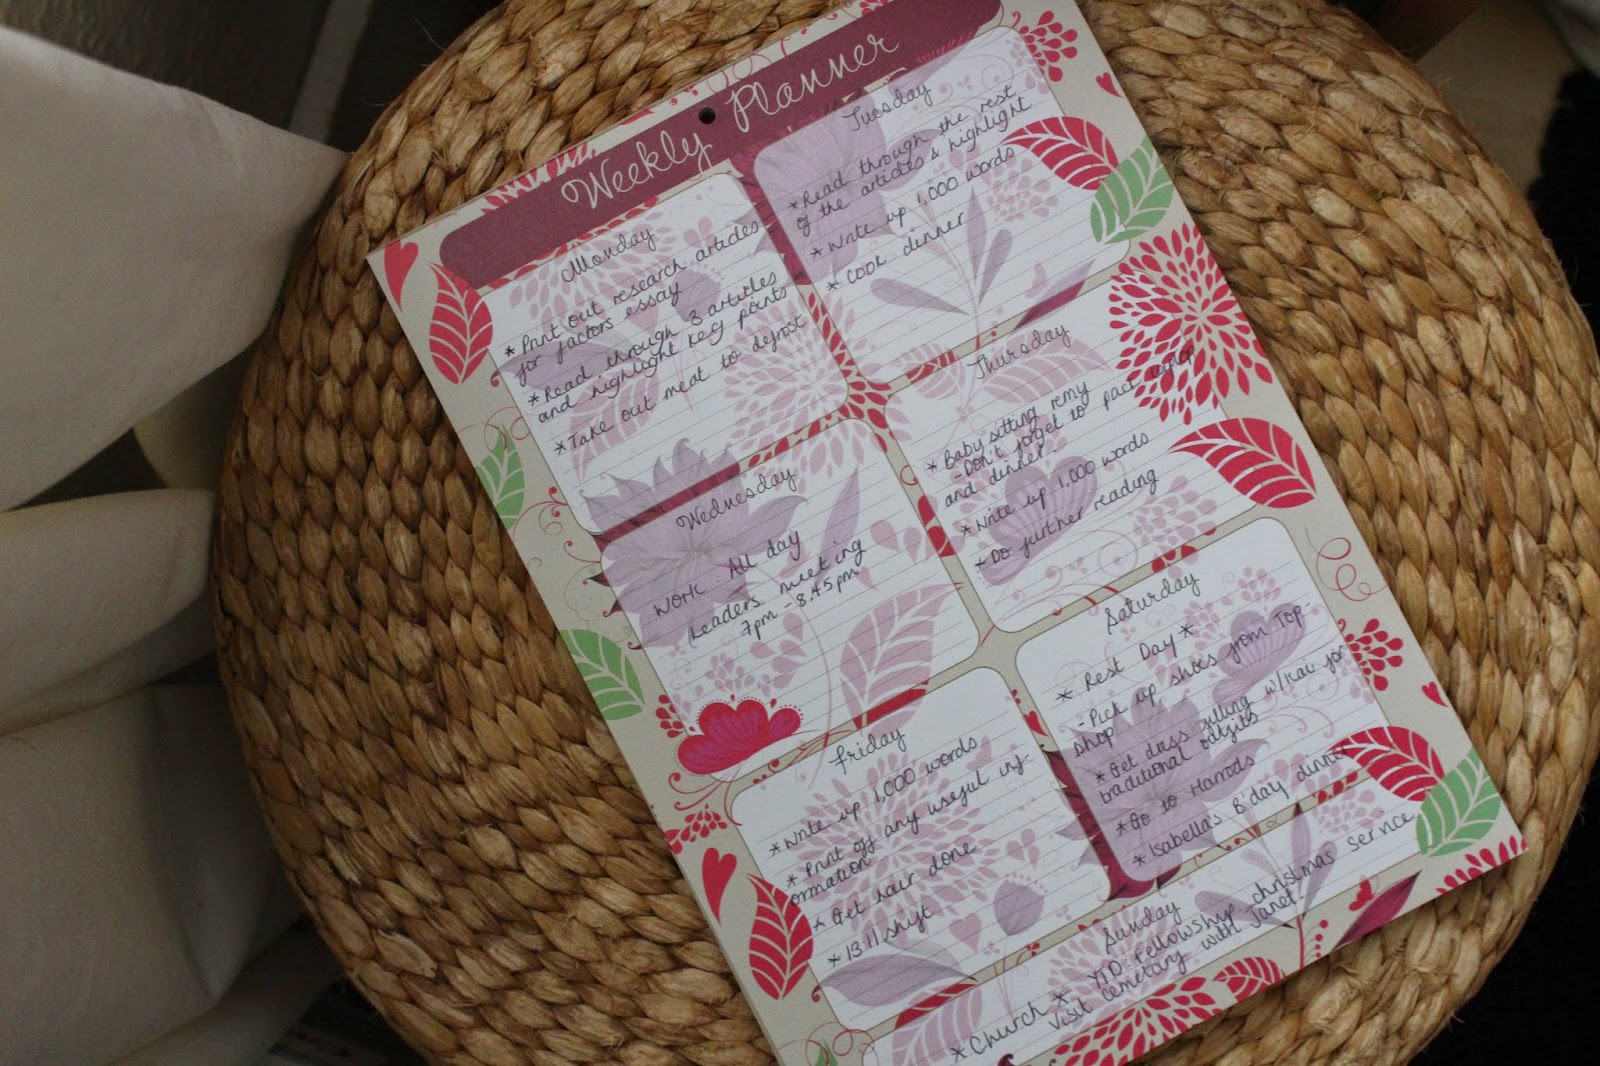 Weekly Planner
Monday
* Print out research articles
for factors essay
* Read through 3 articles
and highlight key points
* Take out meat to defrost
Tuesday
* Read through the rest
of the articles & highlight
* Write up 1,000 words
* Cook dinner
Wednesday
WORK: All day
Leaders meeting
7pm - 8.45pm
Thursday
* Baby sitting remy
- Don't forget to pack laptop
and dinner.
* Write up 1,000 words
* Do further reading
Friday
* Write up 1,000 words
* Print off any useful inf-
ormation
* Get hair done
* 1311 shift
Saturday
* Rest Day *
- Pick up shoes from Top-
shop
* Get dress w/ for
traditional outfits
* Go to Harrods
* Isabella's B'day dinner
Sunday
* Church * YTD: Fellowship christmas service
Visit cemetary with Janet.